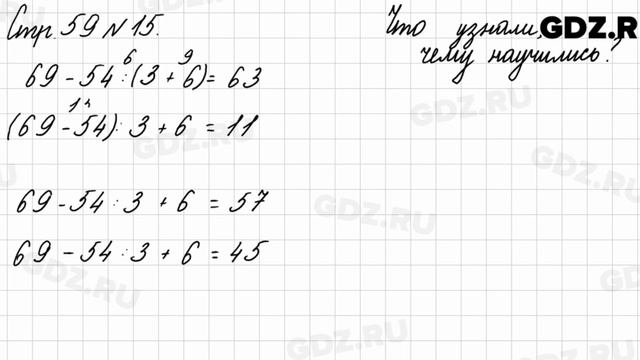 Стр. 59 N 15.
Что узнали,
чему научились?
GDZ.R
6 9
69 - 54 : (3 + 6) = 63
(69 - 54) : 3 + 6 = 11
69 - 54 : 3 + 6 = 57
69 - 54 : 3 + 6 = 45
GDZ.RU
GDZ.RU
GDZ.RU
GDZ.RU
GDZ.RU